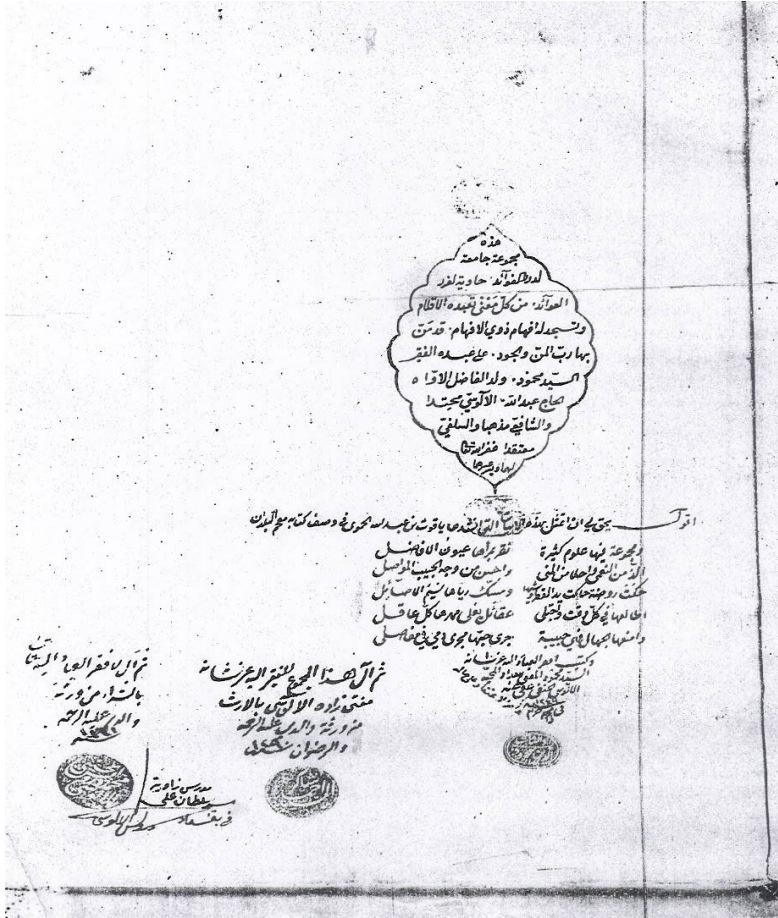 هذه
مجموعة جامعة
لدرر الفوائد. حاوية لغرر
العوائد. من كل معنى تعبده الاقلام
وتسجد له افهام ذوي الافهام. قد من
بها رب المن والجود. على عبده الفقير
السيد محمود. ولد الفاضل الاواه
الحاج عبدالله. الآلوسي محتدا
والشافعي مذهبا والسلفي
معتقدا غفر الله تعالى
لهما
اقول يحق لي ان اتمثل بهذه الابيات التي انشدها ياقوت بن عبد الله الحموي في وصف كتابه معجم البلدان
ومجموعة فيها علوم كثيرة تقر بمرآها عيون الافاضل
الذ من النعمى واحلا من المنى واحسن من وجه الحبيب المواصل
حكت روضة حاكت يد القطر وشيها ومسك رباها نسيم الاصائل
اطالعها في كل وقت واجتلي عقائل يغلى مهرها كل عاقل
وامنعها الجهال فهي حبيبة جرى حبها مجرى دمي في مفاصلي
وكتب افقر العباد اليه عز شانه
السيد محمود المفتي ببغداد
ثم آل هذا المجموع للفقير اليه عز شانه
مفتي زاده الآلوسي بالارث
من ورثة والدي عليه الرحمة
والرضوان
ثم آل لافقر العباد اليه
بالشراء من ورثة
والدي عليه الرحمة
مدرس زاوية
سيد سلطان علي
في بغداد الآلوسي